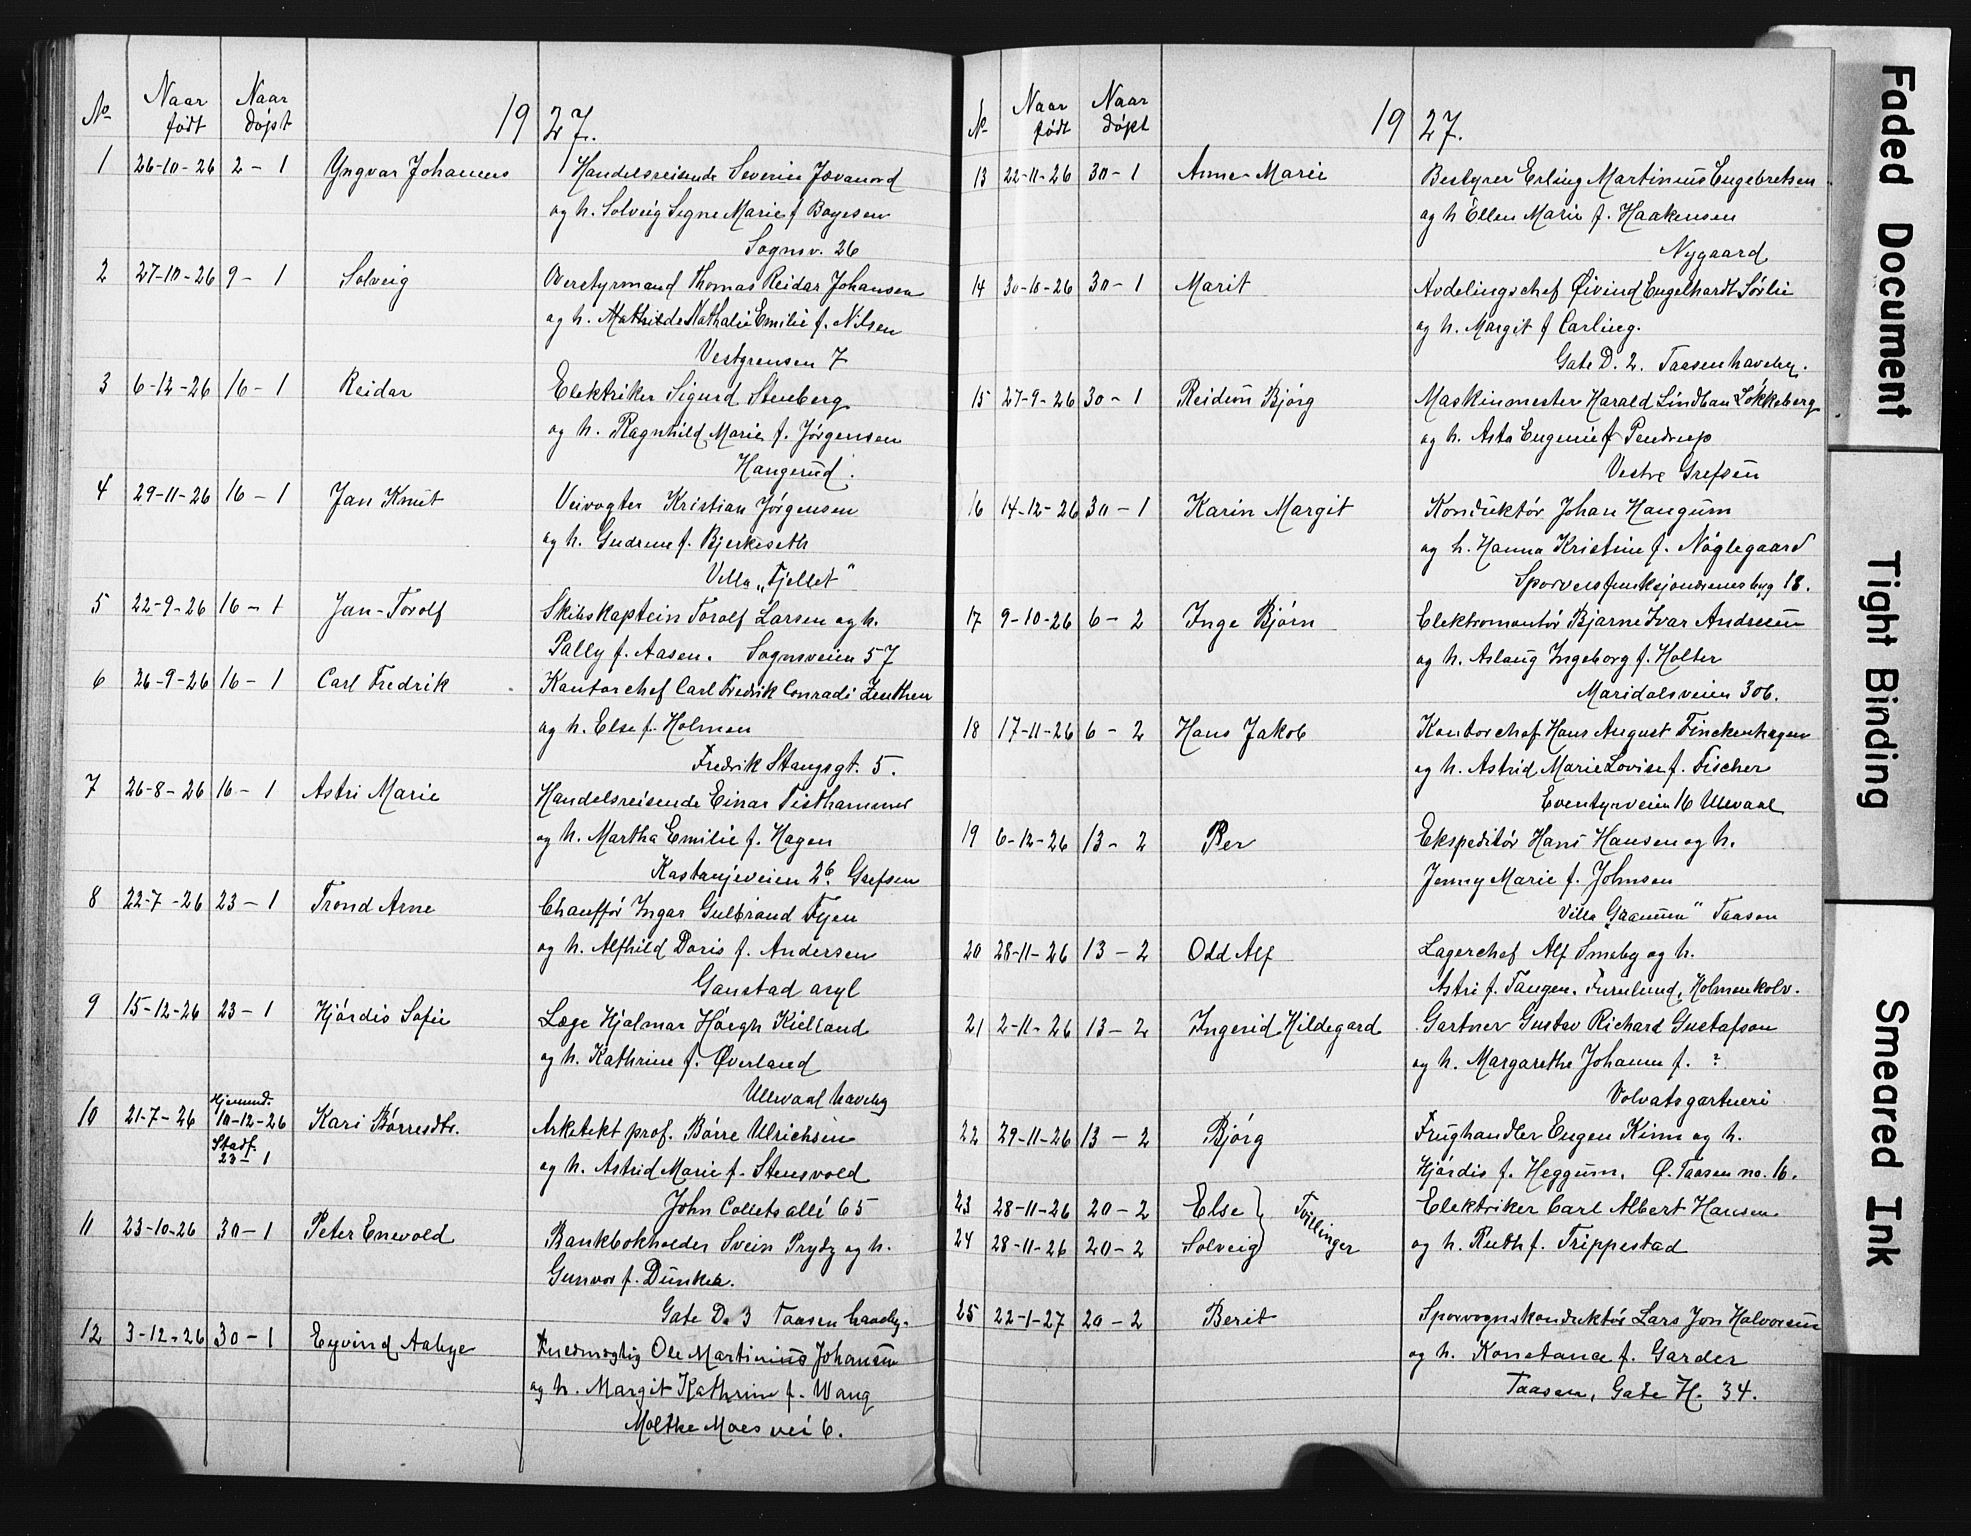 No Naar født Naar døpt 1927.
1 26-10-26 2-1 Yngvar Johannes Handelsreisende Severin Jævanord
og h. Solveig Signe Marie f. Boyesen
Sognsv. 26
2 27-10-26 9-1 Solveig Overstyrmand Thomas Reidar Johansen
og h. Mathilde Nathalie Emilie f. Nilsen
Vestgrensen 7
3 6-12-26 16-1 Reidar Elektriker Sigurd Stenberg
og h. Ragnhild Marie f. Jørgensen
Haugerud.
4 29-11-26 16-1 Jan Knut Veivogter Kristian Jørgensen
og h. Gudrun f. Bjerkeseth
Villa „Fjellet"
5 22-9-26 16-1 Jan-Torolf Skibskaptein Torolf Larsen og h.
Pally f. Aasen. Sognsveien 57
6 26-9-26 16-1 Carl Fredrik Kontorchef Carl Fredrik Conradi Zeuthen
og h. Else f. Holmen
Fredrik Stangsgt. 5.
7 26-8-26 16-1 Astri Marie Handelsreisende Einar Tisthammer
og h. Martha Emilie f. Hagen
Kastanjeveien 2b. Grefsen
8 22-7-26 23-1 Trond Arne Chauffør Ingar Gulbrand Fjen
og h. Alfhild Doris f. Andersen
Gaustad asyl
9 15-12-26 23-1 Hjørdis Sofie Læge Hjalmar Høegh Kielland
og h. Kathrine f. Øverland
Ullevaal haveby
10 21-7-26 Hjemmed. 10-12-26 Stadf. 23-1 Kari Børresdtr. Arkitekt prof. Børre Ulrichsen
og h. Astrid Marie f. Stensvold
John Collets allé 65
11 23-10-26 30-1 Peter Enevold Bankbokholder Svein Prydz og h.
Gunvor f. Dunker.
Gate D. 3 Taasen haveby.
12 3-12-26 30-1 Eyvind Aabye Fuldmægtig Ole Martinius Johansen
og h. Margit Kathrine f. Wang
Moltke Moes vei 6.
No Naar født Naar døpt 1927.
13 22-11-26 30-1 Anne-Marie Bestyrer Erling Martinius Engebretsen
og h Ellen Marie f. Haakensen
Nygaard
14 30-10-26 30-1 Marit Avdelingschef Øivind Engelhardt Sørlie
og h. Margit f Carling.
Gate D. 2. Taasen haveby.
15 27-9-26 30-1 Reidun Bjørg Maskinmester Harald Lindbau Løkkeberg
og h. Asta Eugenie f Pendrup
Vestre Grefsen
16 14-12-26 30-1 Karin Margit Konduktør Johan Haugum
og h. Hanna Kristine f. Nøglegaard
Sporveisfunksjonærenes byg 18.
17 9-10-26 6-2 Inge Bjørn Elektromontør Bjarne Ivar Andresen
og h. Aslaug Ingeborg f. Holter
Maridalsveien 306.
18 17-11-26 6-2 Hans Jakob Kontorchef Hans August Finckenhagen
og h. Astrid Marie Lovise f. Fischer
Eventyrveien 16 Ullevaal
19 6-12-26 13-2 Per Ekspeditør Hans Hansen og h.
Jenny Marie f. Johnsen
Villa „Granum" Taasen
20 28-11-26 13-2 Odd Alf Lagerchef Alf Smeby og h.
Astri f. Tangen. Furulund, Holmenkolv.
21 2-11-26 13-2 Ingerid Hildegard Gartner Gustav Richard Gustafson
og h. Margarethe Johanne f. ?
Volvatsgartneri
22 29-11-26 13-2 Bjørg Frugthandler Eugen Kinn og h.
Hjørdis f. Heggum. Ø. Taasen no. 16.
23 28-11-26 20-2 Else } Tvillinger Elektriker Carl Albert Hansen
24 28-11-26 20-2 Solveig og h. Ruth f. Trippestad
25 22-1-27 20-2 Berit Sporvognskonduktør Lars Jon Halvorsen
og h. Konstance f. Garder
Taasen, Gate H. 34.
Faded Document
Tight Binding
Smeared Ink